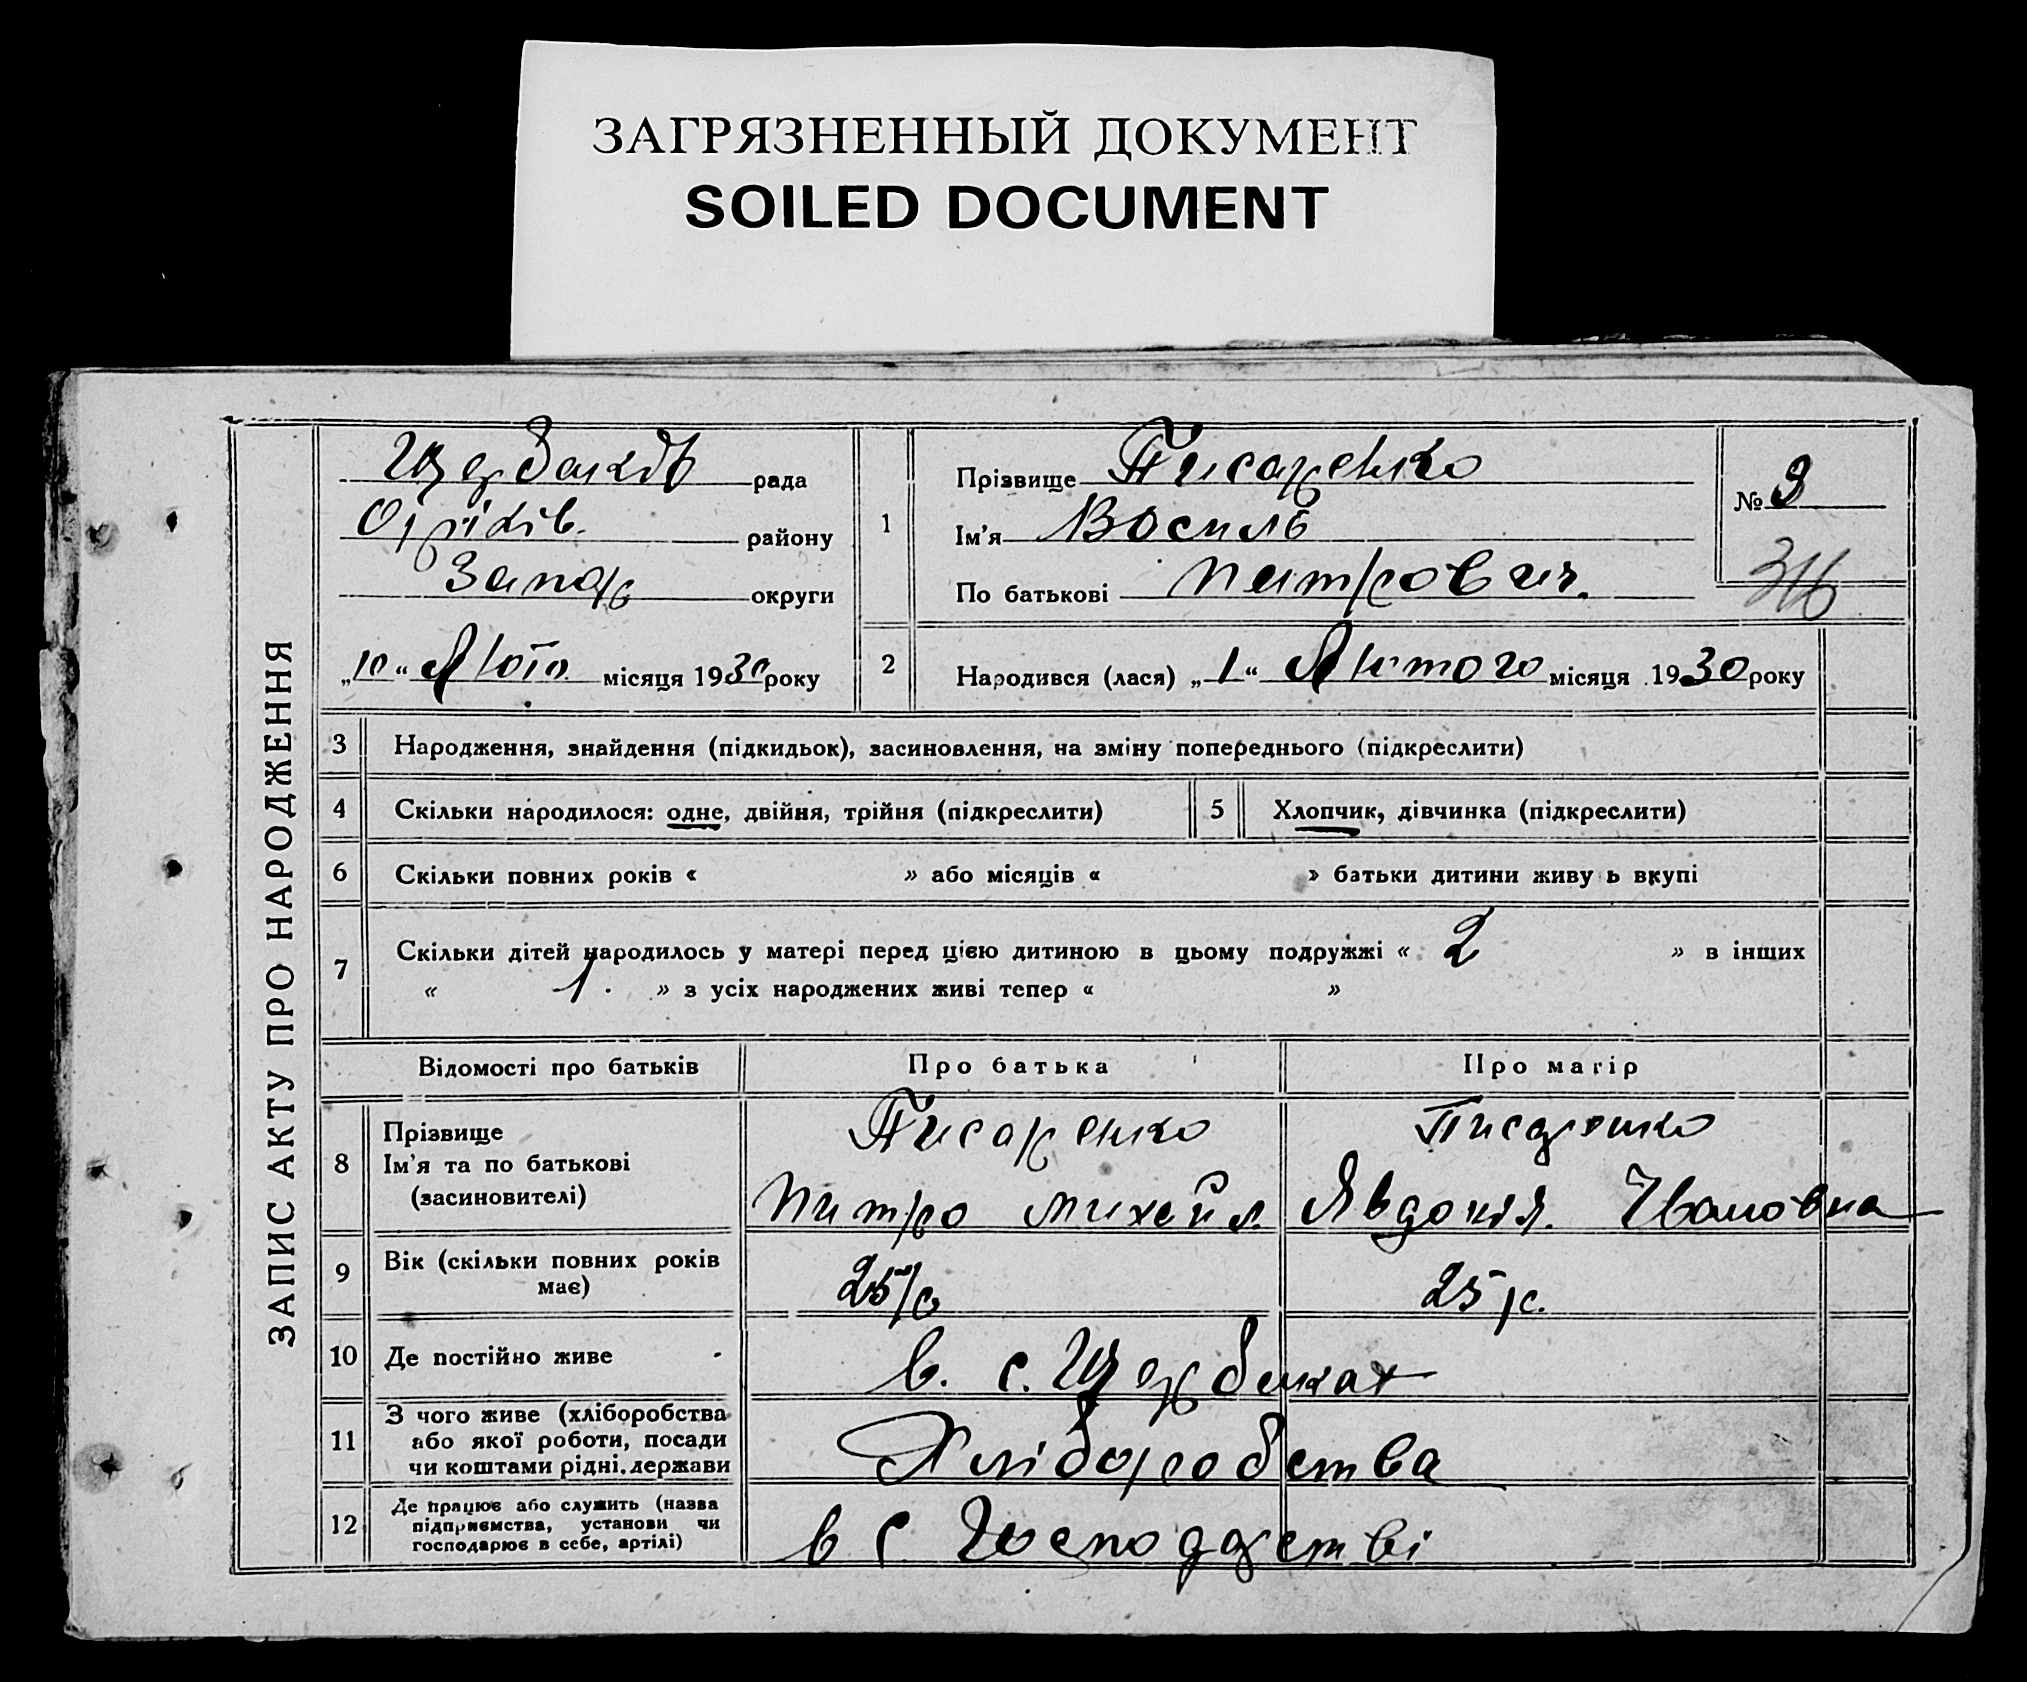 ЗАГРЯЗНЕННЫЙ ДОКУМЕНТ
SOILED DOCUMENT
ЗАПИС АКТУ ПРО НАРОДЖЕННЯ
Щербаків рада
Оріхів. району
Запор округи
„10“ Лютого місяця 1930 року
1
Прізвище Писаренко
Ім'я Василь
По батькові Петрович.
№ 3
2 Народився (лася) „1“ Лютого місяця 1930 року
3 Народження, знайдення (підкидьок), засиновлення, на зміну попереднього (підкреслити)
4 Скільки народилося: одне, двійня, трійня (підкреслити) 5 Хлопчик, дівчинка (підкреслити)
6 Скільки повних років « » або місяців « » батьки дитини живу ь вкупі
7 Скільки дітей народилось у матері перед цією дитиною в цьому подружжі « 2 » в інших
« 1. » з усіх народжених живі тепер « »
Відомості про батьків Про батька Про матір
8 Прізвище Писаренко Писаренко
Ім'я та по батькові
(засиновителі) Питро Михайл. Явдокія. Ивановна
9 Вік (скільки повних років має) 25 р 25 р.
10 Де постійно живе в. с. Щербаках
11 З чого живе (хліборобства
або якої роботи, посади
чи коштами рідні, держави Хліборобства
12 Де працює або служить (назва
підприємства, установи чи
господарює в себе, артілі) в С Господдрстві